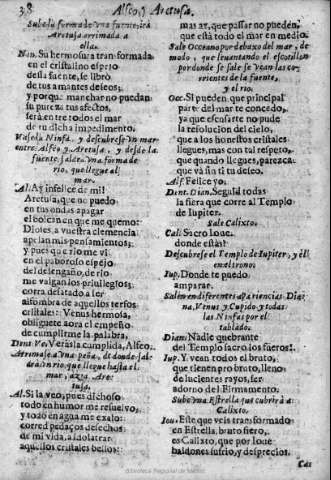 38
Alfeo, y Aretusa.
Sube de su forma de una fuente, irá
Aretusa arrimada a
ella.
Nan. Su hermosura transformada
en el cristalino espejo
desta fuente, se librò
de tus amantes deseos;
y porque manchar no puedan
su pureza tus afectos,
serà entre todos el mar
de tu dicha impedimento.
Vase la Ninfa, y descubrese un mar
entre Alfeo, y Aretusa, y desde la
fuente, saldrá una forma de
rio, que llegue al
mar.
Al. Ay infelice de mi!
Aretusa, que no puedo
en tus ondas apagar
el bolcan en que me quemo:
Dioses, a vuestra clemencia
apelan mis pensamientos;
y pues que rio me vi
en el pavoroso espejo
del desengaño, de rio
me valgan los privilegios;
corra desatado a ser
alfombra de aquellos tersos
cristales: Venus hermosa,
obliguete aora el empeño
de cumplirme la palabra.
Dent. Ve. Veràsla cumplida, Alfeo.
Arrimase a una peña, de donde saldrà
un rio, que llegue hasta el
mar, azia Aretusa.
Al. Si la veo, pues dichoso
todo en humor me resuelvo,
y todo en agua me exalo:
corred pedaços deshechos
de mi vida, a idolatrar
aquellos cristales bellos:
mas ay, que passar no pueden,
que està todo el mar en medio.
Sale Occeano por debaxo del mar, de
modo, que levantando el escotillon
por donde se sale se vean las corrientes
de la fuente,
y el rio.
Occ. Si pueden, que principal
parte del mar te concedo,
ya que escusarte no pude
la resolucion del cielo,
que a los honestos cristales
llegues, mas con tal respeto,
que quando llegues, parezca:
que và sin ti tu deseo.
Alf. Felice yo.
Dent. Dian. Seguid todas
la fiera que corre al Templo
de Iupiter.
Sale Calixto.
Cal. Sacro Ioue,
donde estàs?
Descubrese el Templo de Iupiter, y èl
en el trono.
Iup. Donde te puedo
amparar.
Salen en diferentes apariencias Diana,
Venus, y Cupido, y todas
las Ninfas por el
tablado.
Dian. Nadie quebrante
del Templo sacro los fueros.
Iup. Y vean todos el bruto,
que tienen pro bruto, lleno
de lucientes rayos, ser
adorno del Firmamento.
Sube una Estrella que cubrirà a
Calixto.
Iou. Este que veis transformado
en Estrella, bruto fiero,
es Calixto, que por Ioue
baldones sufriò, y desprecios.
Cai
Biblioteca Regional de Madrid